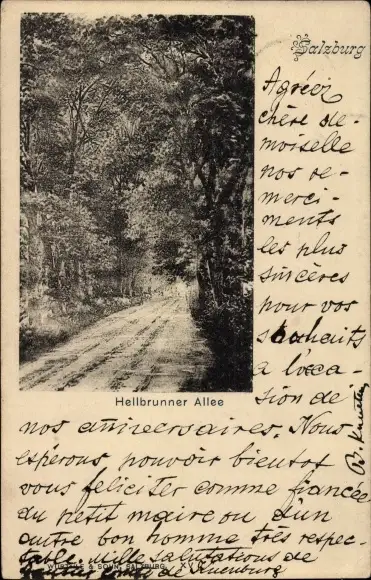 Salzburg
Agréez
chère de-
moiselle
nos re-
merci-
ments
les plus
sincères
pour vos
souhaits
a l'occa-
sion de
Hellbrunner Allee
nos anniversaires. Nous
espérons pouvoir bientot
vous feliciter comme fiancée
du petit maire ou d'un
autre bon homme très respec-
table. Mille salutations de
de Luneburg